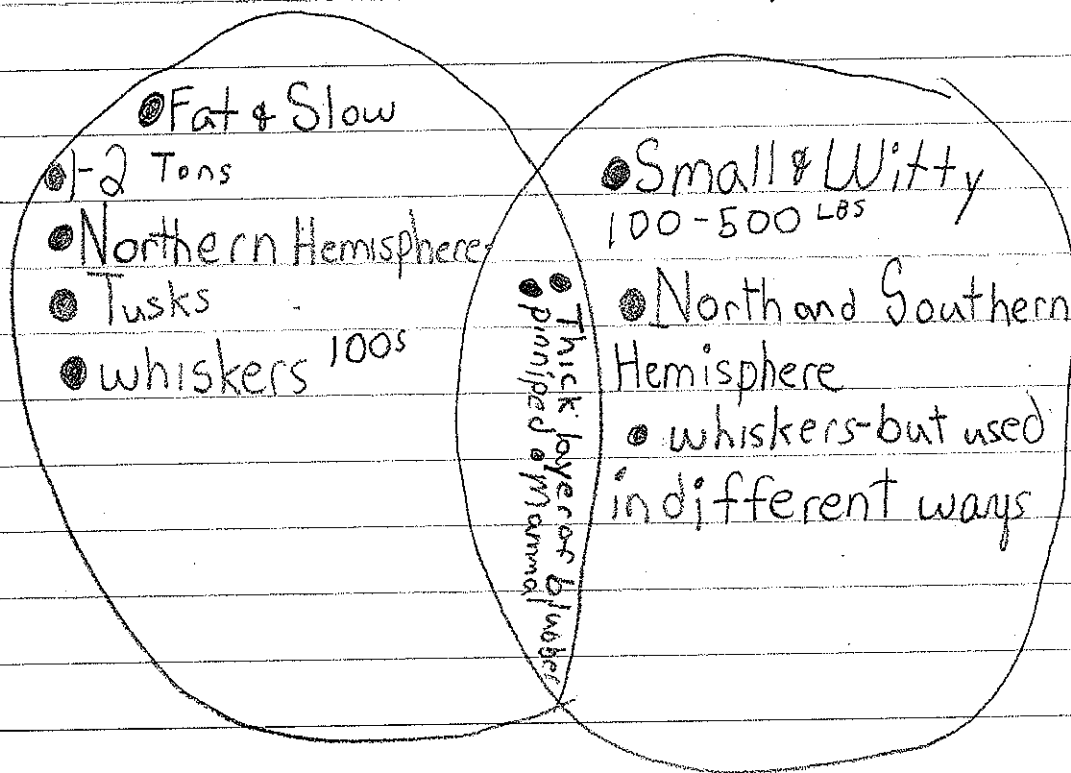 Fat & Slow
1-2 Tons
Northern Hemisphere
Tusks
whiskers 100s
Thick layer of blubber
pinniped • Mammal
Small & Witty
100-500 LBS
North and Southern
Hemisphere
whiskers-but used
in different ways